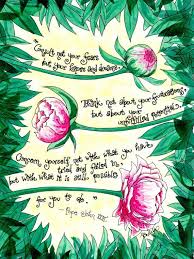 "Consult not your fears
but your hopes and dreams.
Think not about your frustrations,
but about your
unfulfilled potential.
Concern yourself not with what you have
tried and failed in,
but with what it is still possible
for you to do."
- Pope John XXIII